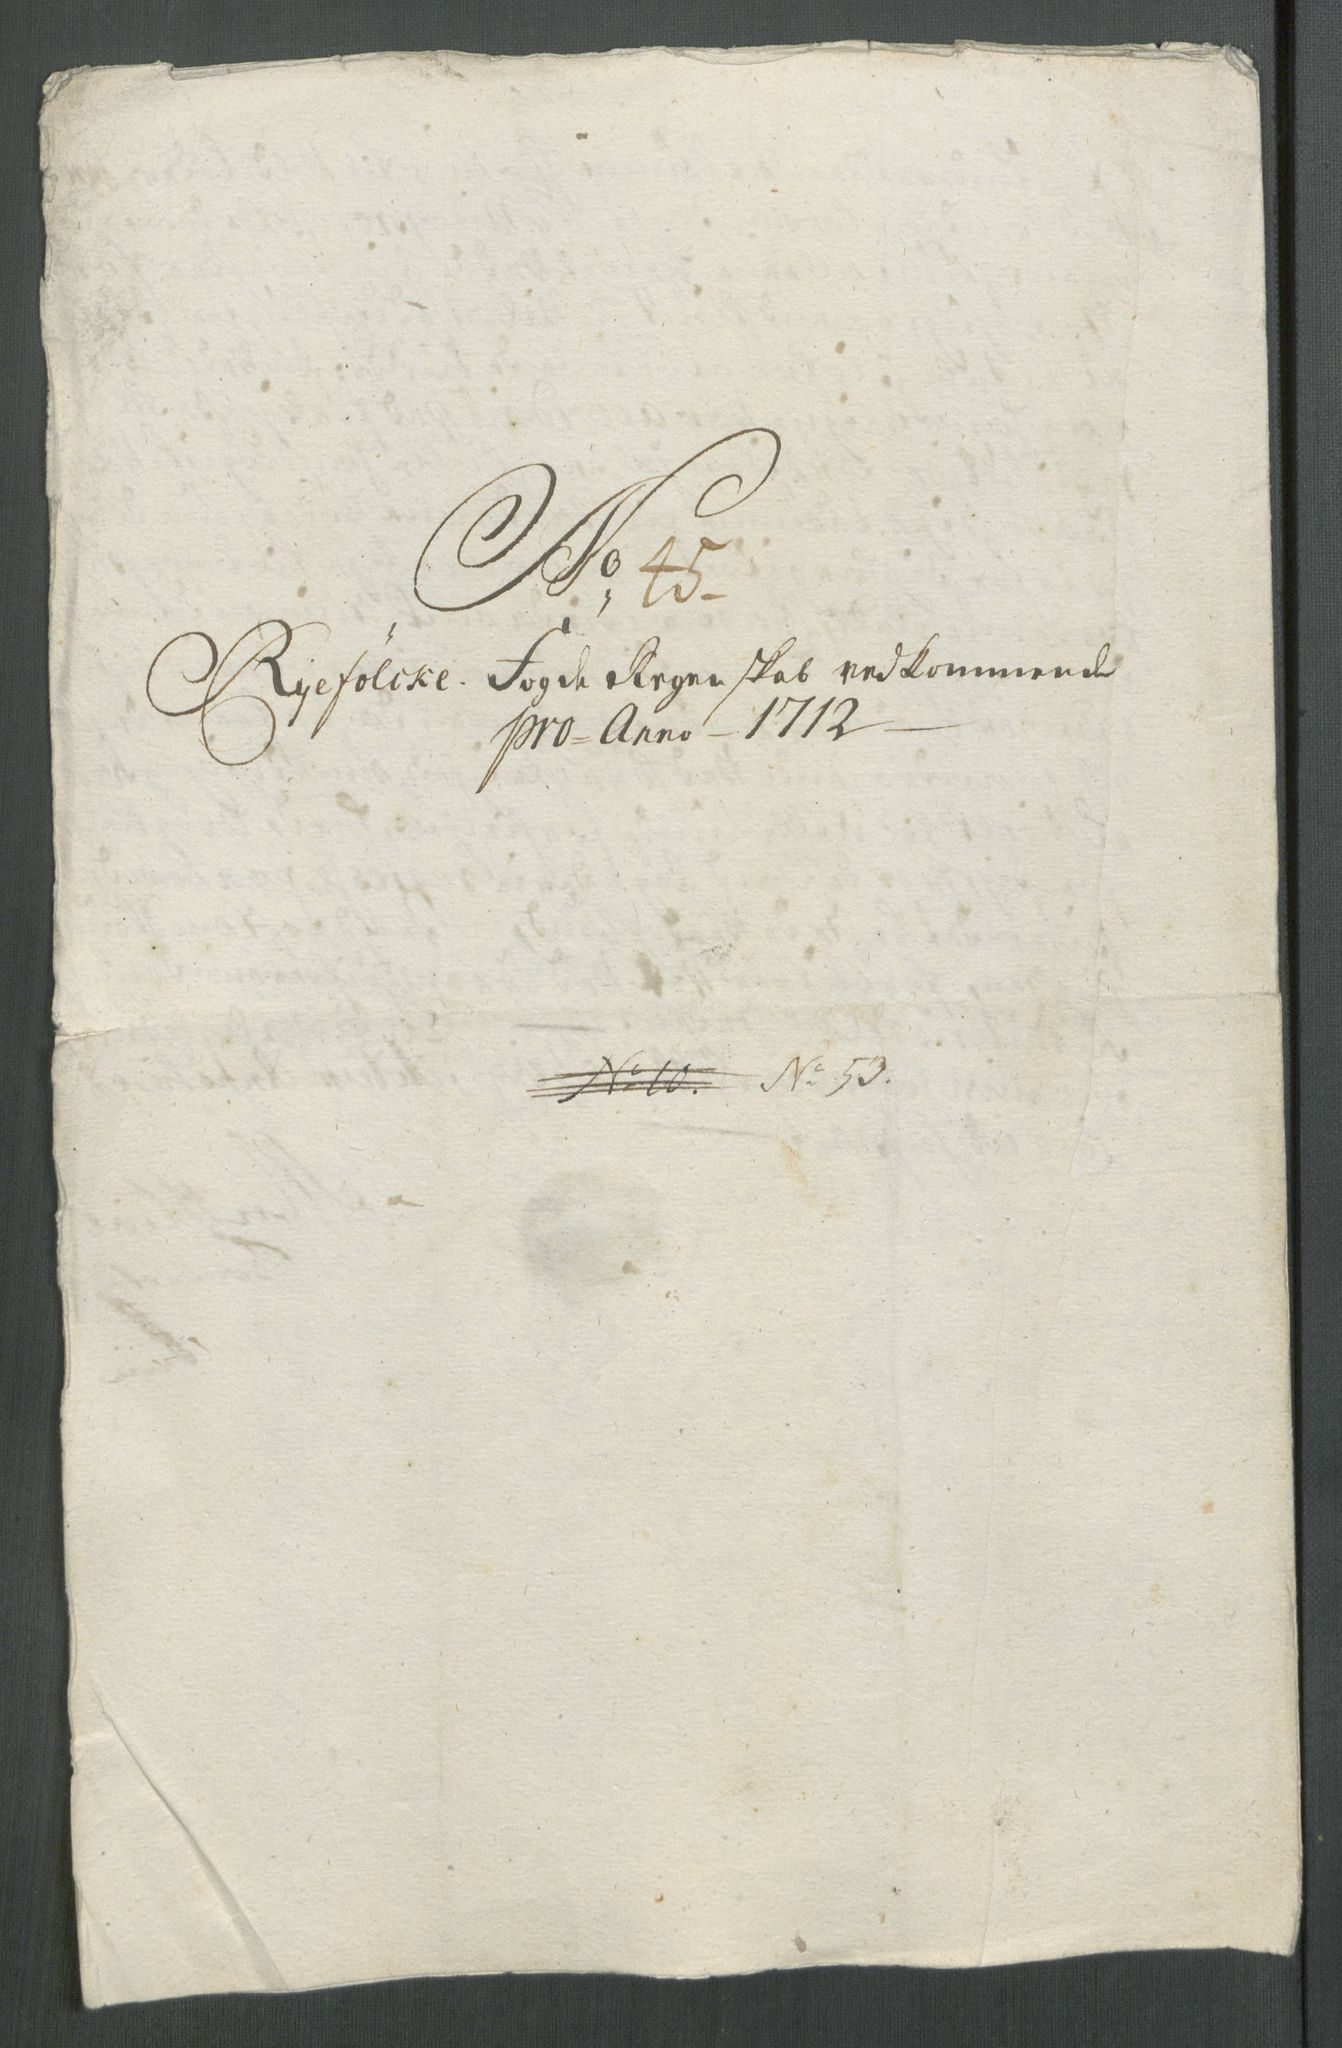 No, 45-
Ryefölcke. Fogde Regenskab vedkommende
pro = Anno - 1712 -
No 10. No 53.